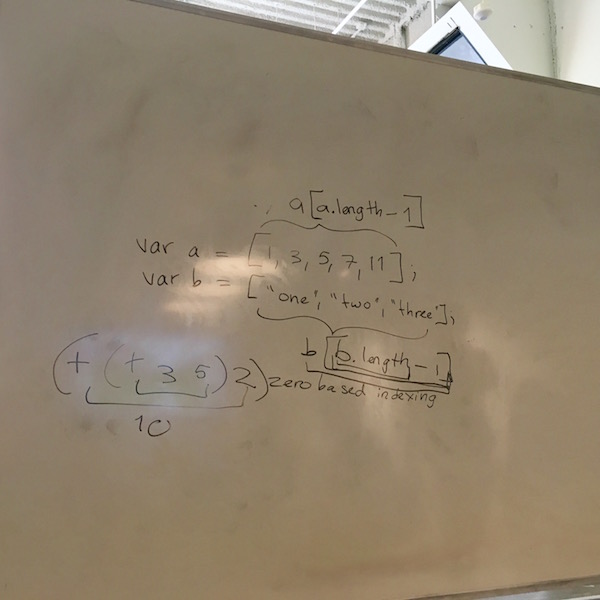 a[a.length-1]
var a = [1, 3, 5, 7, 11];
var b = ["one", "two", "three"];
b[b.length-1]
(+ (+ 3 5) 2) zero based indexing
10